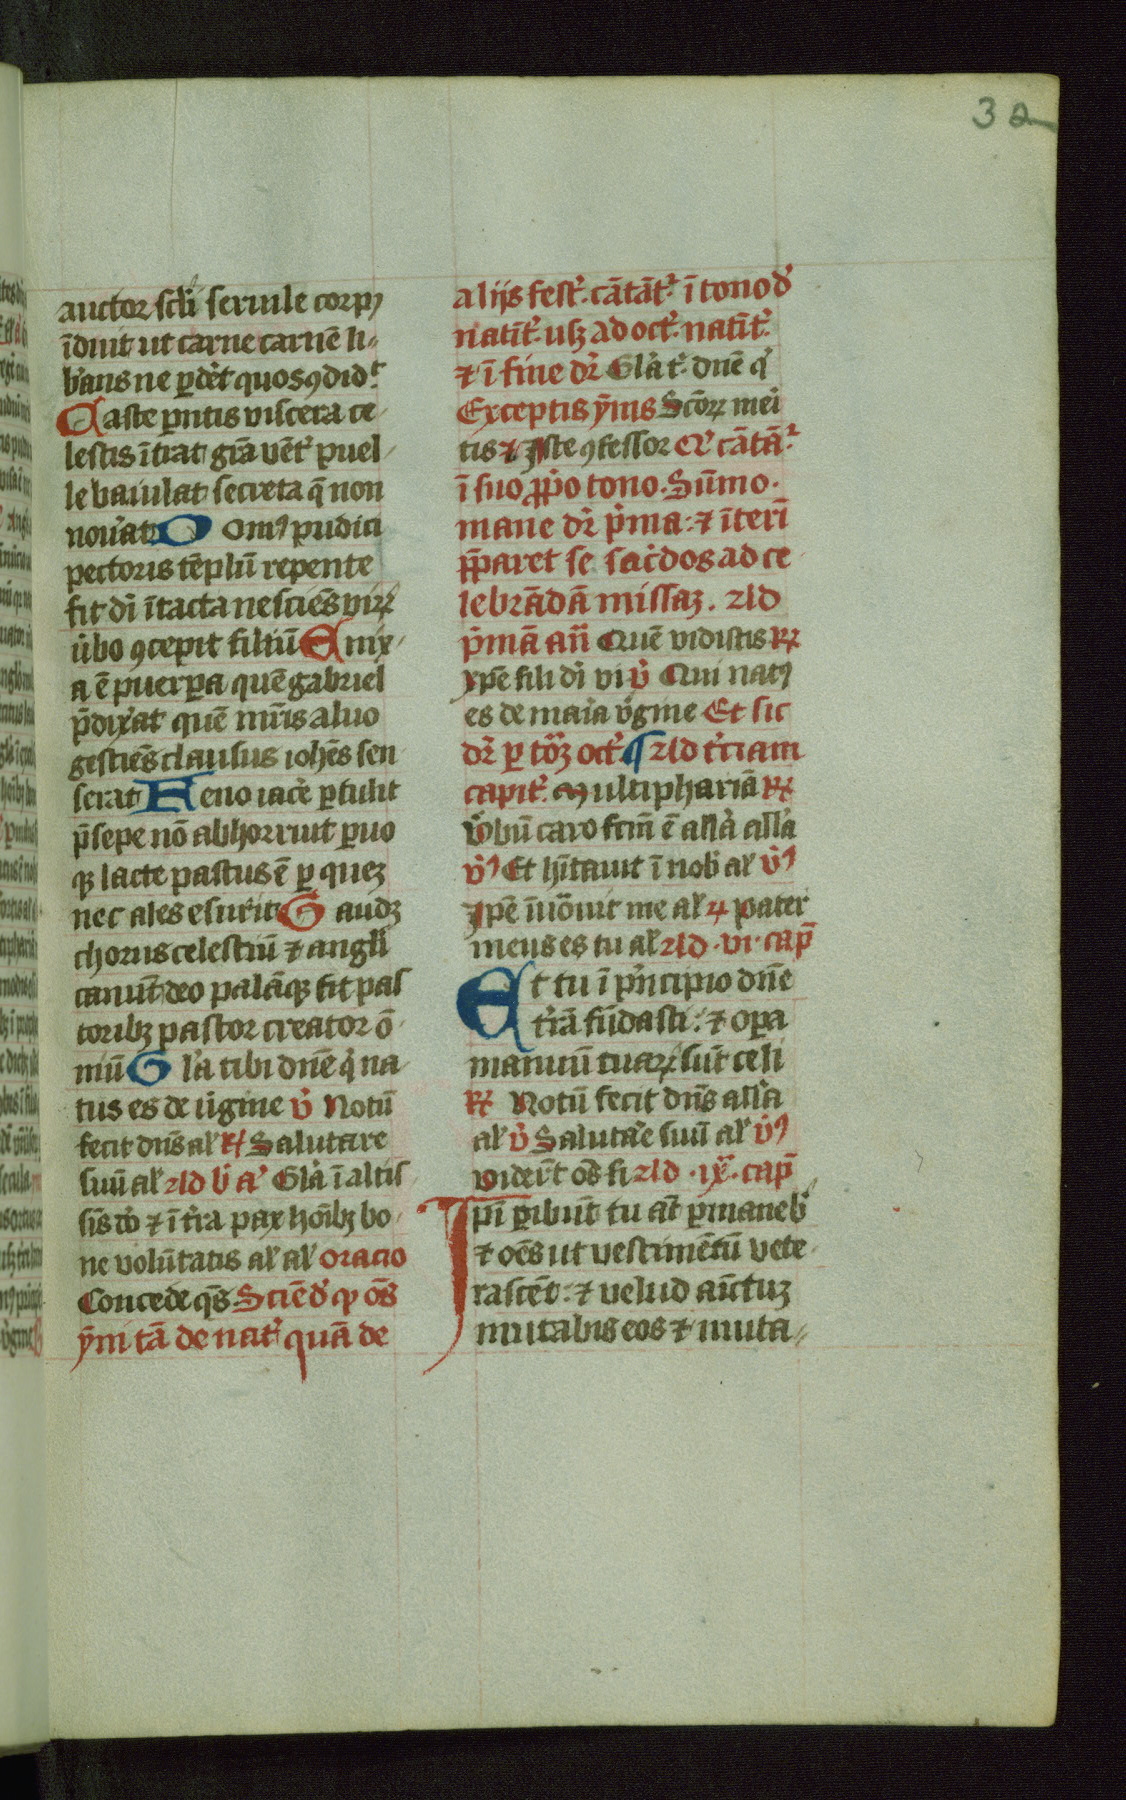 32
auctor scl̄i seruile corpꝰ
īduit ut carne carnē li-
b̓ans ne ꝑd̓et quos ꝯdid̓t
Caste ꝑntis viscera ce
lestis ītrat gr̄a vēt̓ puel
le baiulat secreta q̄ non
nou̓at Domꝰ pudici
pectoris tēplū repente
fit dī ītacta nesciēs uirꝝ
ūbo ꝯcepit filiū Enix
a ē puerꝑa quē gabriel
p̄dix̓at quē mr̄is aluo
gestiēs clausus ioh̄es sen
serat Feno iac̓e ꝑtulit
p̄sepe nō abhorruit ꝑuo
qꝫ lacte pastus ē ꝑ quez
nec ales esurit Gaudꝫ
chorus celestiū ⁊ angl̄i
canūt deo palāqꝫ fit pas
toribꝫ pastor creator ō
niū Gl̓a tibi dn̄e q̓ na
tus es de ūgine v̓ Notū
fecit dn̄s al̓ ꝶ Salutare
suū al̓ ꝛld b̓ a̓ Gl̓a ī altis
sīs d̓o ⁊ ī t̓ra pax hōībꝫ bo
ne volūtatis al̓ al̓ oracio
Concede qs̄ Sciēd̓ qꝫ oēs
ȳm̄i tā de nat̓ quā de
alijs fest̓ cātāt̓ ī tono d̓
natīt̓ usqꝫ ad oct̓ natīt̓
⁊ ī fine dr̄ Gl̓a t̓ dn̄e q̓
Exceptis ȳm̄is Scōꝝ meri
tis ⁊ Iste ꝯfessor Et̓ cātāt̓
ī suo ꝓp̓o tono Sūmo
mane dr̄ p̓ma: ⁊ īterī
p̄paret se sac̓dos ad ce
lebrādā missaꝫ. ꝛld
p̓mā an̄ Quē vidistis ꝶ
xp̄e fili dī vi v̓ Qui natꝰ
es de mar̓ia v̓gine Et sic
dr̄ ꝑ totā oct̓ ¶ ꝛld t̓ciam
capit̓ Multiphariā ꝶ
V̓bū caro fcm̄ ē all̓a all̓a
v̓ꝰ Et hītauit ī nob̓ al̓ v̓ꝰ
Ip̄e īuōuit me al̓ ꝶ pater
meus es tu al̓ ꝛld ·vi· cap̄
Et tu ī p̓ncipio dn̄e
t̓rā fūdasti: ⁊ oꝑa
manuū tuaꝝ sūt celi
ꝶ Notū fecit dn̄s all̓a
al̓ v̓ Saluta̓e suū al̓ v̓ꝰ
viderūt oēs fi ꝛld ·ix· cap̄
Ip̄i ꝑibūt tu āt ꝑmaneb̓
⁊ oēs ut vestimētū vete
rascēt: ⁊ velud amictuꝫ
mutabis eos ⁊ muta-